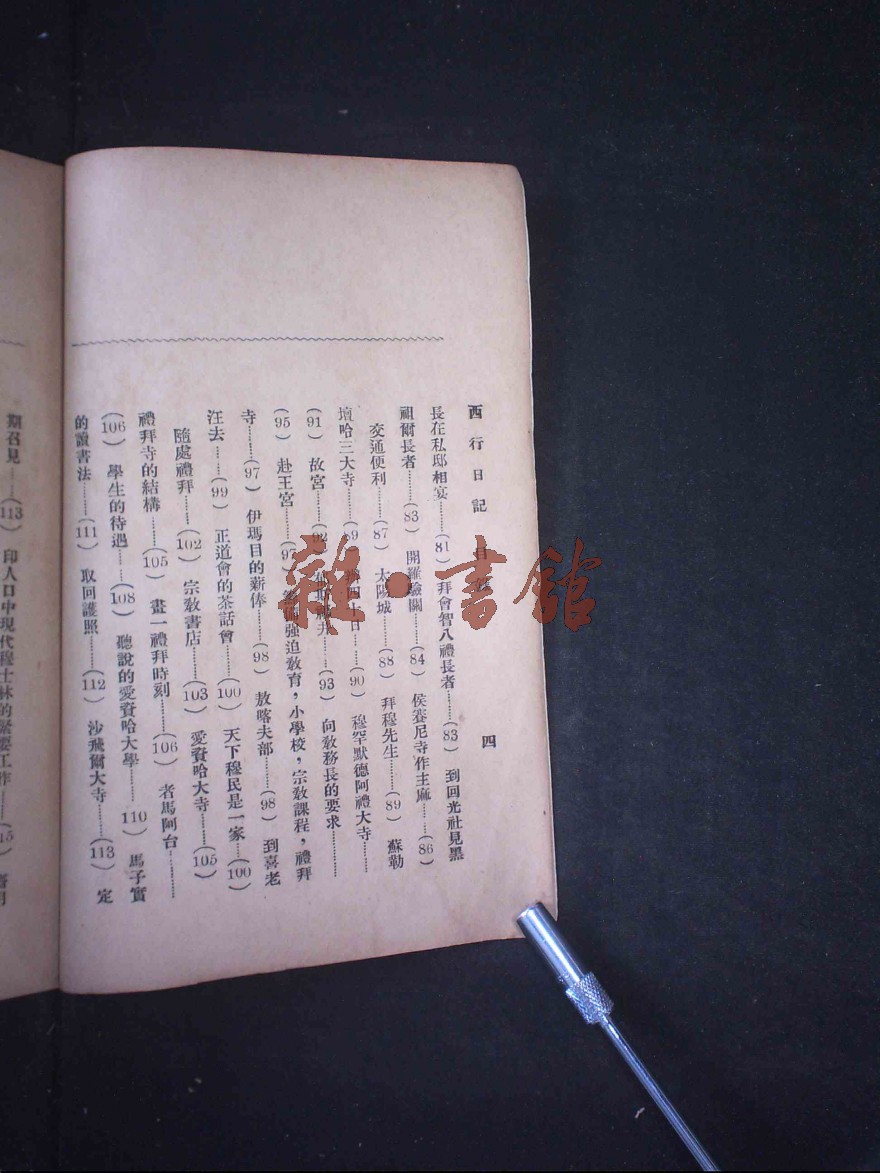 西行日記 目 四
長在私邸相宴……(81) 拜會智八禮長者……(83) 到回光社見黑
祖爾長者……(83) 開羅驗關……(84) 侯賽尼寺作主麻……(86)
交通便利……(87) 太陽城……(88) 拜穆先生……(89) 蘇勒
壇哈三大寺……(89) 日……(90) 穆罕默德阿禮大寺……
(91) 故宮……(92) ……(93) 向敎務長的要求……
(95) 赴王宮……(97) 強迫敎育，小學校，宗敎課程，禮拜
寺……(97) 伊瑪目的薪俸……(98) 敖喀夫部……(98) 到喜老
汪去……(99) 正道會的茶話會……(100) 天下穆民是一家……(100)
隨處禮拜……(102) 宗敎書店……(103) 愛資哈大寺……(105)
禮拜寺的結構……(105) 畫一禮拜時刻……(106) 者馬阿台……
(106) 學生的待遇……(108) 聽說的愛資哈大學……110) 馬子實
的讀書法……(111) 取回護照……(112) 沙飛爾大寺……(113) 定
期召見……(113) 印人口中現代穆士林的緊要工作……
雜·書館